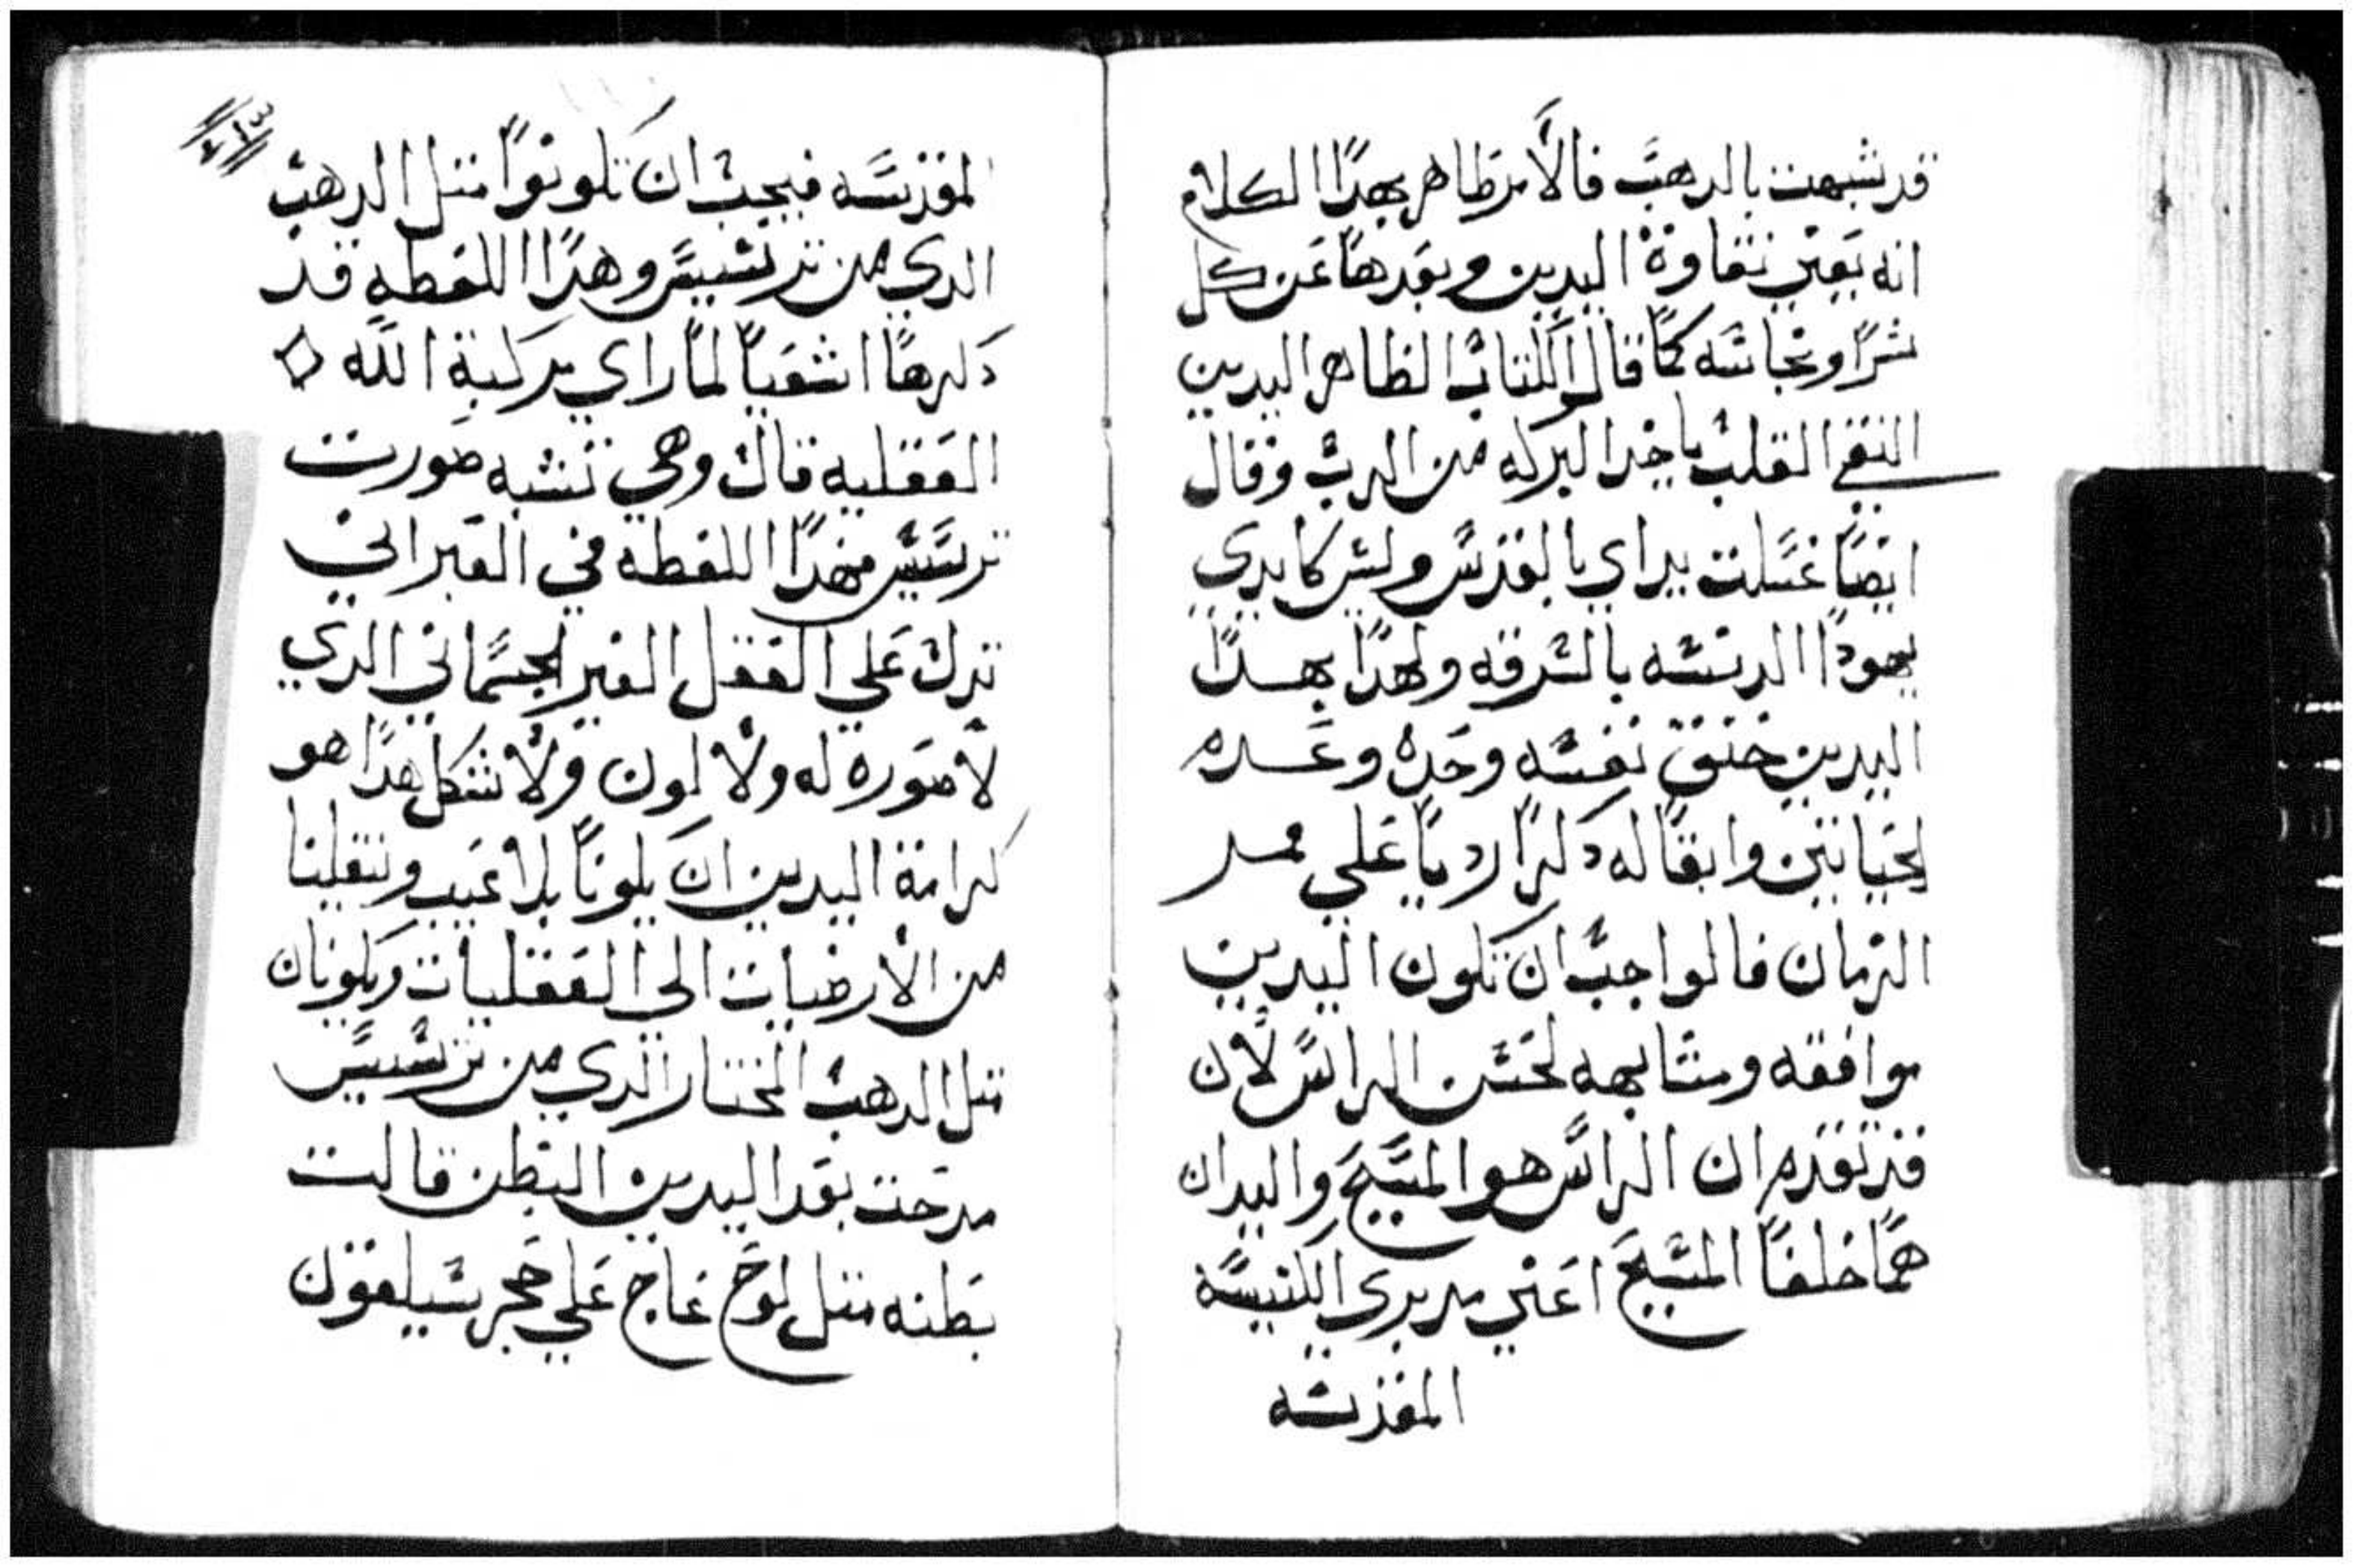 قد شبهت بالدهب فالأمر ظاهر بهدا الكلام
انه يعني نقاوة اليدين وبعدهما عن كل
شرا ونجاسه كما قال الكتاب الظاهر اليدين
النقي القلب ياخد البركه من الرب وقال
ايضا غسلت يداي بالقدس وليس كايدي
يهودا الدنسه بالسرقه ولهدا بهدا
اليدين خنق نفسه وحده وعدم
الحياتين وابقا له دكرا رديا على ممر
الزمان فالواجب ان تكون اليدين
موافقه ومشابهه لحسن الراس لأن
قد تقدم ان الراس هو المسيح واليدان
هما خلفا المسيح اعني مدبري الكنيسة
المقدسه
المقدسه فيجب ان تكونوا متل الدهب
الدي من ترسيس وهدا اللفظه قد
دكرها اشعيا لما راي مركبة الله
العقليه قال وهي تشبه صورت
ترسيس فهدا اللفظه في العبراني
تدل على العقل الغير الجسماني الدي
لا صوره له ولا لون ولا شكل هدا هو
كرامة اليدين ان يكونا بلا عيب وينتقلينا
من الأرضيات الى العقليات ويكونان
متل الدهب المختار الدي من ترسيس
مدحت بعد اليدين البطن قالت
بطنه متل لوح عاج على حجر سيلفون